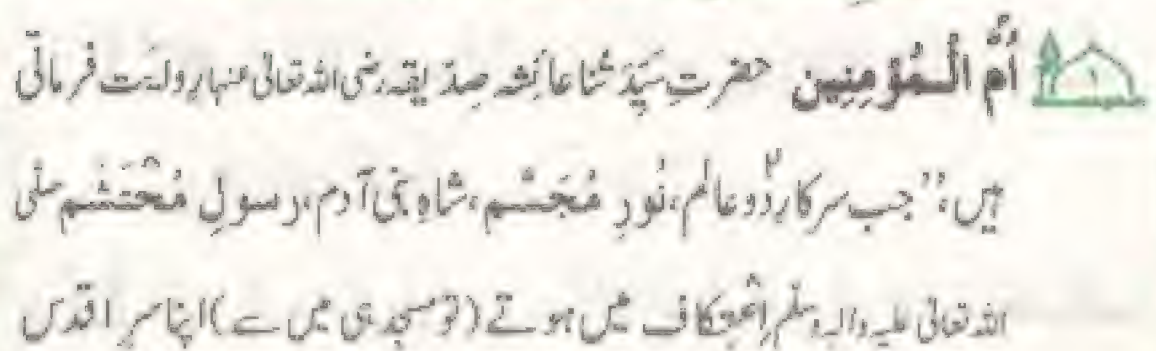 ۱ اُمُّ الْمُؤمِنِین حضرتِ سَیِّدَتُنا عائِشہ صِدّیقہ رضی اللہ تعالیٰ عنہا روایت فرماتی
ہیں، ''جب سرکارِ دُوعالم، نُورِ مُجَسَّم، شاہِ بنی آدم، رسولِ مُحتَشَم صلی
اللہ تعالیٰ علیہ والہ وسلم اِعتِکاف میں ہوتے (تو مسجد ہی میں سے) اپنا سرِ اقدس